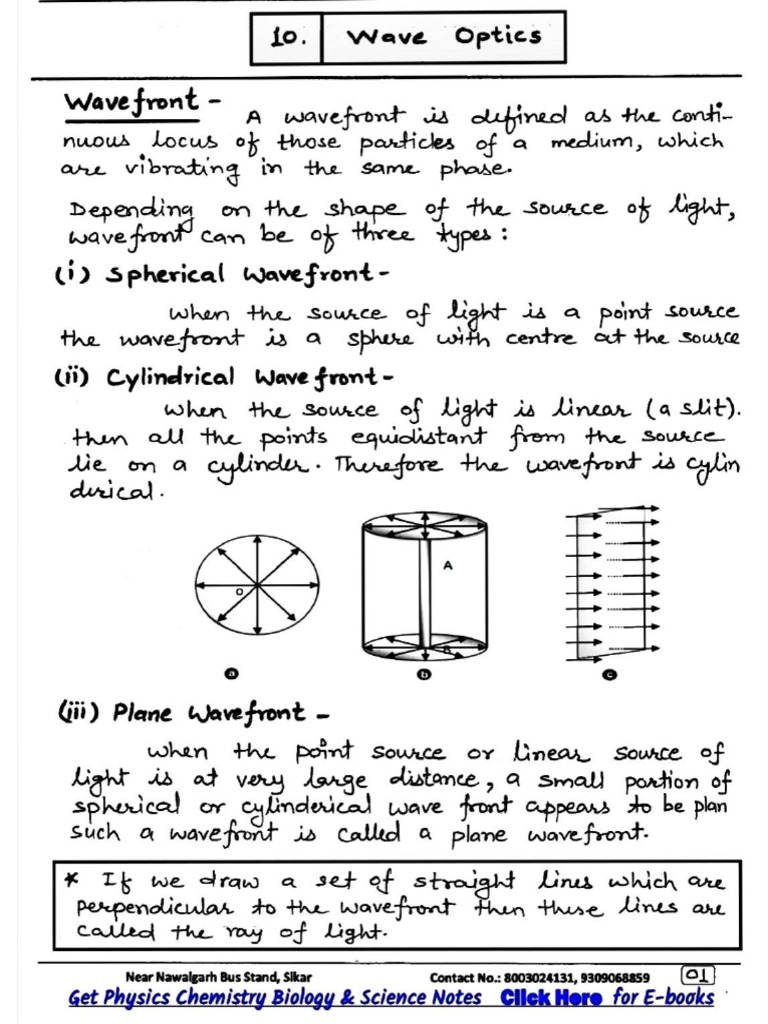 10. Wave Optics
Wavefront - A wavefront is defined as the conti-
nuous locus of those particles of a medium, which
are vibrating in the same phase.
Depending on the shape of the source of light,
wavefront can be of three types :
(i) Spherical Wavefront -
When the source of light is a point source
the wavefront is a sphere with centre at the source
(ii) Cylindrical Wavefront -
When the source of light is linear (a slit).
then all the points equidistant from the source
lie on a cylinder. Therefore the wavefront is cylin
derical.
O
A
B
a b c
(iii) Plane Wavefront -
When the point source or linear source of
light is at very large distance, a small portion of
spherical or cylinderical wave front appears to be plan
such a wavefront is called a plane wavefront.
* If we draw a set of straight lines which are
perpendicular to the wavefront then these lines are
called the ray of light.
Near Nawalgarh Bus Stand, Sikar Contact No.: 8003024131, 9309068859 01
Get Physics Chemistry Biology & Science Notes Click Here for E-books